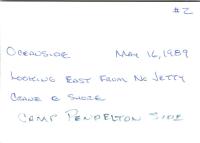 #2
OCEANSIDE MAY 16, 1989
LOOKING EAST FROM NO JETTY
CRANE & SHORE
CAMP PENDELTON SIDE